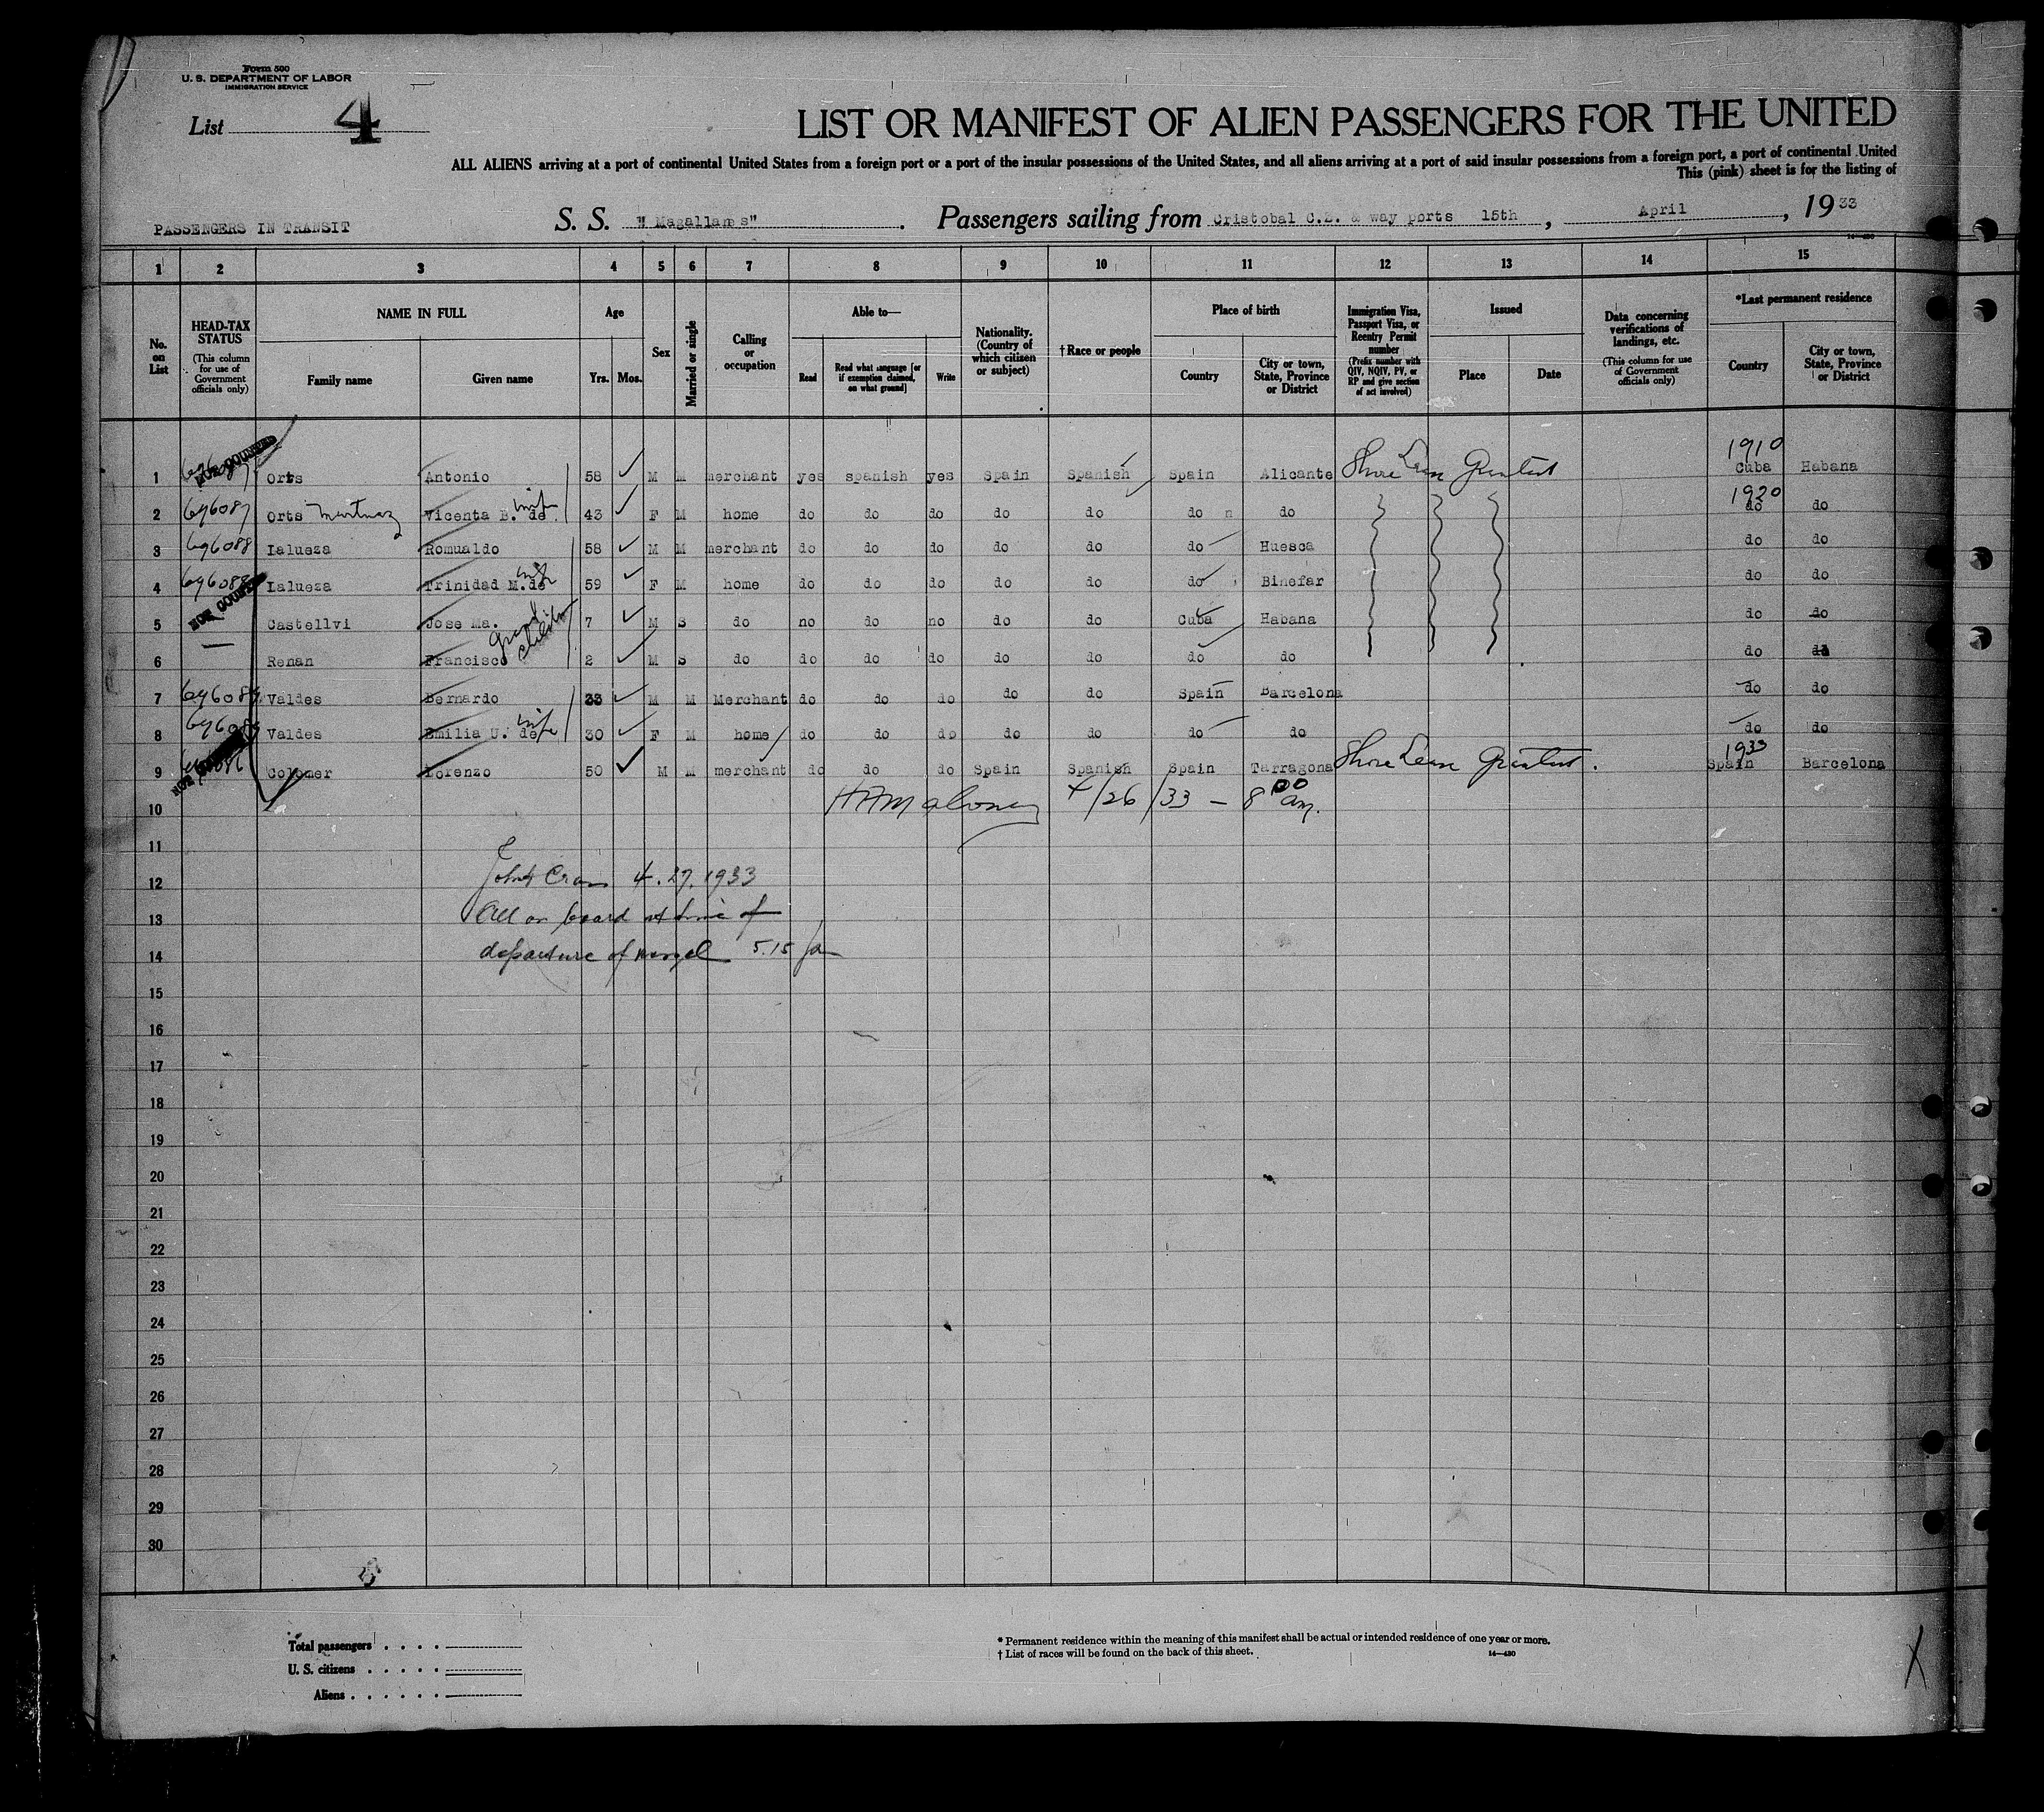 Form 500
U. S. DEPARTMENT OF LABOR
IMMIGRATION SERVICE
List 4
LIST OR MANIFEST OF ALIEN PASSENGERS FOR THE UNITED
ALL ALIENS arriving at a port of continental United States from a foreign port or a port of the insular possessions of the United States, and all aliens arriving at a port of said insular possessions from a foreign port, a port of continental United
This (pink) sheet is for the listing of
PASSENGERS IN TRANSIT S. S. "Magallanes". Passengers sailing from Cristobal C.Z. & way ports 15th, April, 1933
1 2 3 4 5 6 7 8 9 10 11 12 13 14 15
No. on List
HEAD-TAX STATUS
(This column for use of Government officials only)
NAME IN FULL
Family name Given name
Age
Yrs. Mos.
Sex
Married or single
Calling or occupation
Able to—
Read
Read what language [or if exemption claimed, on what ground]
Write
Nationality. (Country of which citizen or subject)
† Race or people
Place of birth
Country
City or town, State, Province or District
Immigration Visa, Passport Visa, or Reentry Permit number
(Prefix number with QIV, NQIV, PV, or RP and give section of act involved)
Issued
Place Date
Data concerning verifications of landings, etc.
(This column for use of Government officials only)
*Last permanent residence
Country
City or town, State, Province or District
1910
1 Orts Antonio 58 M M merchant yes spanish yes Spain Spanish Spain Alicante Shore Leave Granted Cuba Habana
1920
2 696087 Orts Martinez Vicenta B. de wife 43 F M home do do do do do do do do do
3 696088 Lalueza Romualdo 58 M M merchant do do do do do do Huesca do do
4 696088 Lalueza Trinidad M. de wife 59 F M home do do do do do do Binefar do do
NON COUNTED
5 Castellvi Jose Ma. 7 M S do no do no do do Cuba Habana do do
grand children
6 Renan Francisco 2 M S do do do do do do do do do do
7 696089 Valdes Bernardo 33 M M Merchant do do do do do Spain Barcelona do do
8 696089 Valdes Emilia U. de wife 30 F M home do do do do do do do do do
1933
9 Colomer Lorenzo 50 M M merchant do do do Spain Spanish Spain Tarragona Shore Leave Granted. Spain Barcelona
10 4/26/33 — 8 00 am.
11
12 John 4.27.1933
13 All on board at time of
14 departure of vessel 5.15
15
16
17
18
19
20
21
22
23
24
25
26
27
28
29
30
Total passengers . . . .
U. S. citizens . . . . .
Aliens . . . . . .
* Permanent residence within the meaning of this manifest shall be actual or intended residence of one year or more.
† List of races will be found on the back of this sheet.
14—430